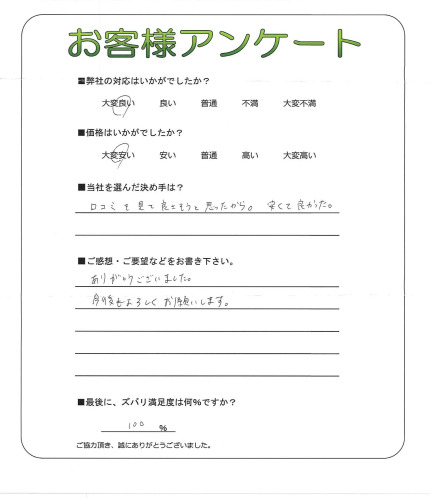 お客様アンケート
■弊社の対応はいかがでしたか？
大変良い　良い　普通　不満　大変不満
■価格はいかがでしたか？
大変安い　安い　普通　高い　大変高い
■当社を選んだ決め手は？
口コミを見て良さそうと思ったから。　安くて良かった。
■ご感想・ご要望などをお書き下さい。
ありがとうございました。
今後もよろしくお願いします。
■最後に、ズバリ満足度は何%ですか？
100 %
ご協力頂き、誠にありがとうございました。